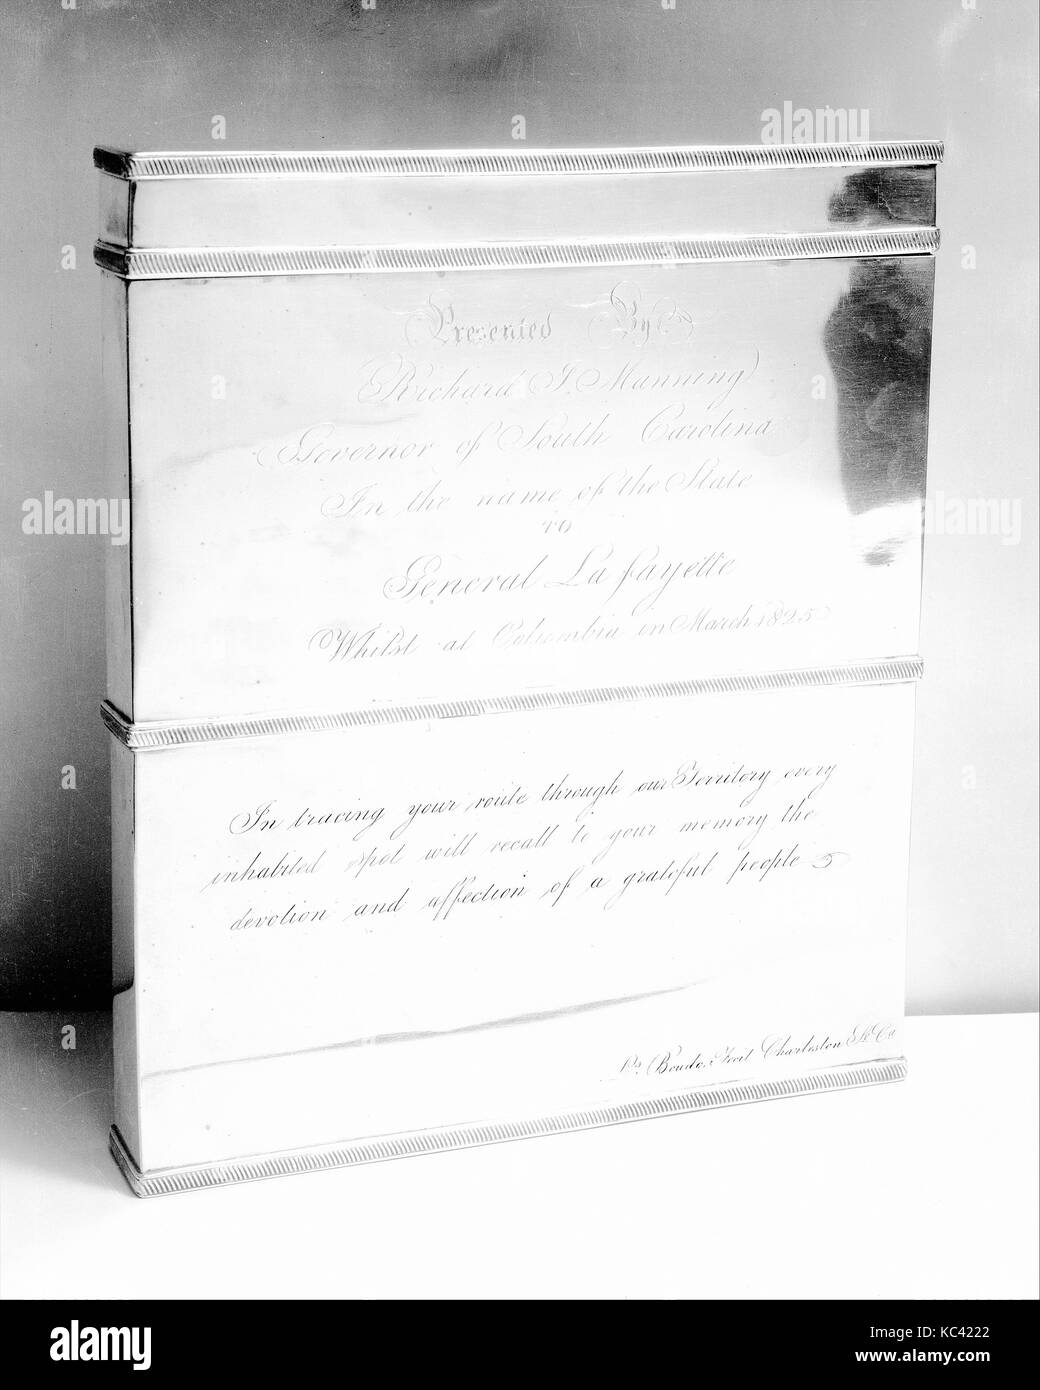 Presented By
Richard I. Manning
Governor of South Carolina
In the name of the State
TO
General La fayette
Whilst at Columbia in March 1825
In tracing your route through our Territory every
inhabited spot will recall to your memory the
devotion and affection of a grateful people
Boudo, Fecit Charleston So Ca
a alamy stock photo
alamy
Image ID: KC4222
www.alamy.com